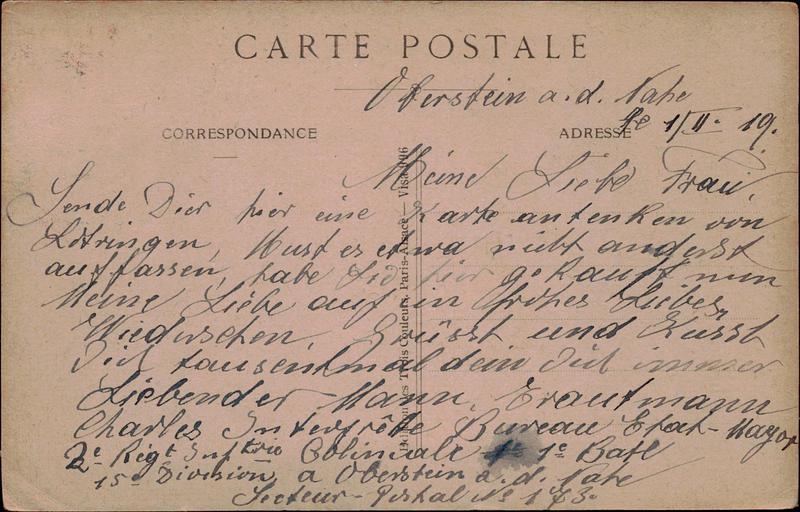 CARTE POSTALE
Oberstein a. d. Nahe
le 1/II 19.
CORRESPONDANCE
ADRESSE
Meine Liebe Frau,
Sende Dier hier eine Karte antenken von
Lotringen, Must es etwa nicht anderst
auffassen, habe sie hier gekauft nun
Meine Liebe auf ein frohes Liebes
Wiedersehen, Grüsst und Küsst
Dich tausentmal dein Dich immer
Liebender Mann, Trautmann
Charles Interprête Bureau Etat-Mayor
2e Rigt Inftrie Coliniale 1e Batl
15e Division a Oberstein a. d. Nahe
Secteur-Postal No 173.
Paris-Alsace — Visa